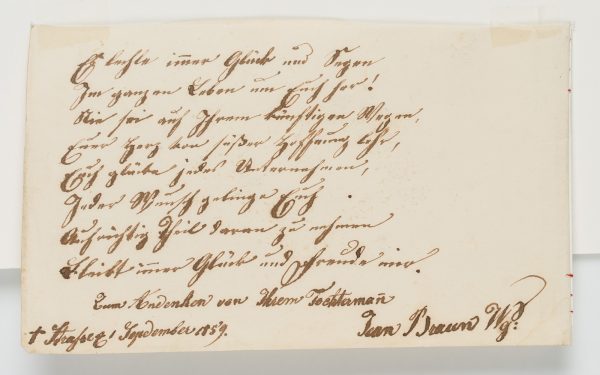 Es lächle immer Glück und Segen
Im ganzen Leben um Euch her!
Nie sei auf Ihrem künftigen Wegen,
Euer Herz von süßer Hoffnung lehr,
Euch glücke jedes Unternehmen,
Jeder Wunsch gelinge Euch
Aufrichtig Theil daran zu nehmen
Bleibt immer Glück und Freude mir.
Zum Andenken von Ihrem Tochtermañ
1 September 1859. Jean Braun